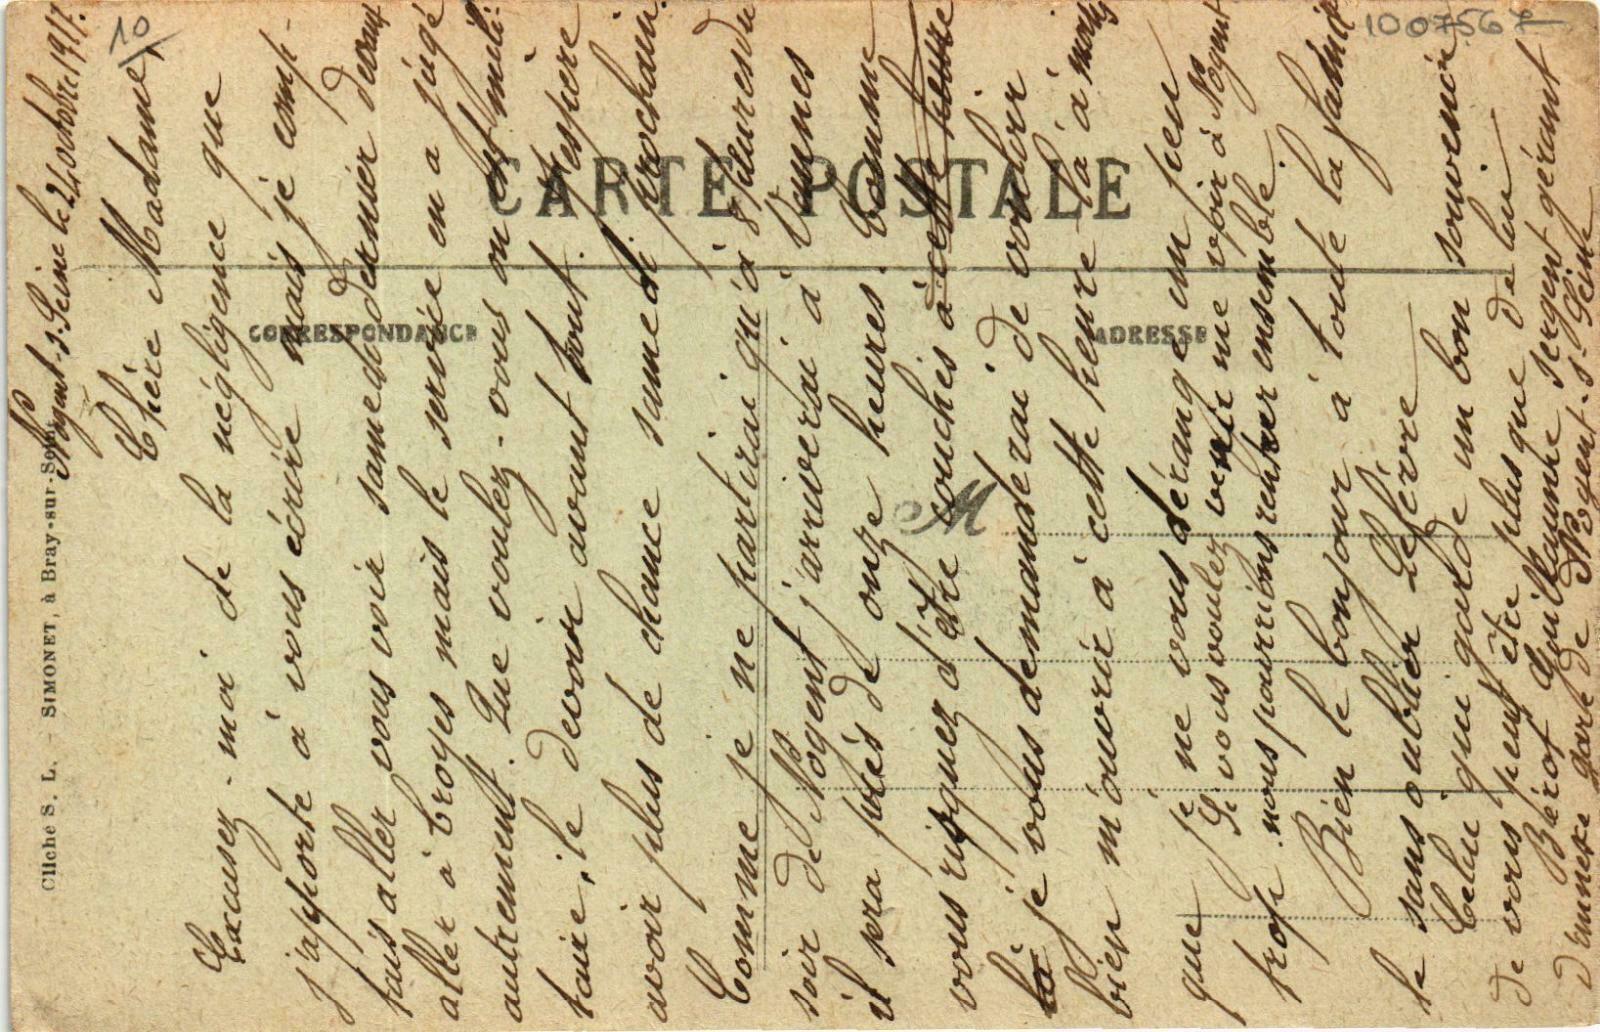 10
1007567
CARTE POSTALE
CORRESPONDANCE
ADRESSE
M
Cliché S. L. - SIMONET, à Bray-sur-Seine
Nogent-s-Seine le 24 octobre 1917.
Chère Madame,
Excusez-moi de la négligence que
j'apporte à vous écrire mais je comp-
tais aller vous voir samedi dernier devant
aller à Broyes mais le service en a jugé
autrement. Que voulez-vous on est mili-
taire, le devoir avant tout. J'espère
avoir plus de chance samedi prochain.
Comme je ne partirai qu'à 8 heures du
soir de Nogent j'arriverai à
il sera près de onze heures. Comme
vous risquez d'être couchés à cette heure
là je vous demanderai de vouloir
bien m'ouvrir à cette heure là à moins
que je ne vous dérange un peu
trop. Si vous voulez venir me voir à Nogent
nous pourrions rentrer ensemble.
Bien le bonjour à toute la famille
sans oublier Lefèvre
Celui qui garde un bon souvenir
de vous peut être plus que de lui
Bérot Guillaume sergent gérant
d'annexe gare de Nogent-s-Seine